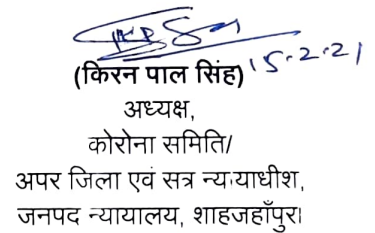 (किरन पाल सिंह) 15.2.21
अध्यक्ष,
कोरोना समिति/
अपर जिला एवं सत्र न्यायाधीश,
जनपद न्यायालय, शाहजहाँपुर।